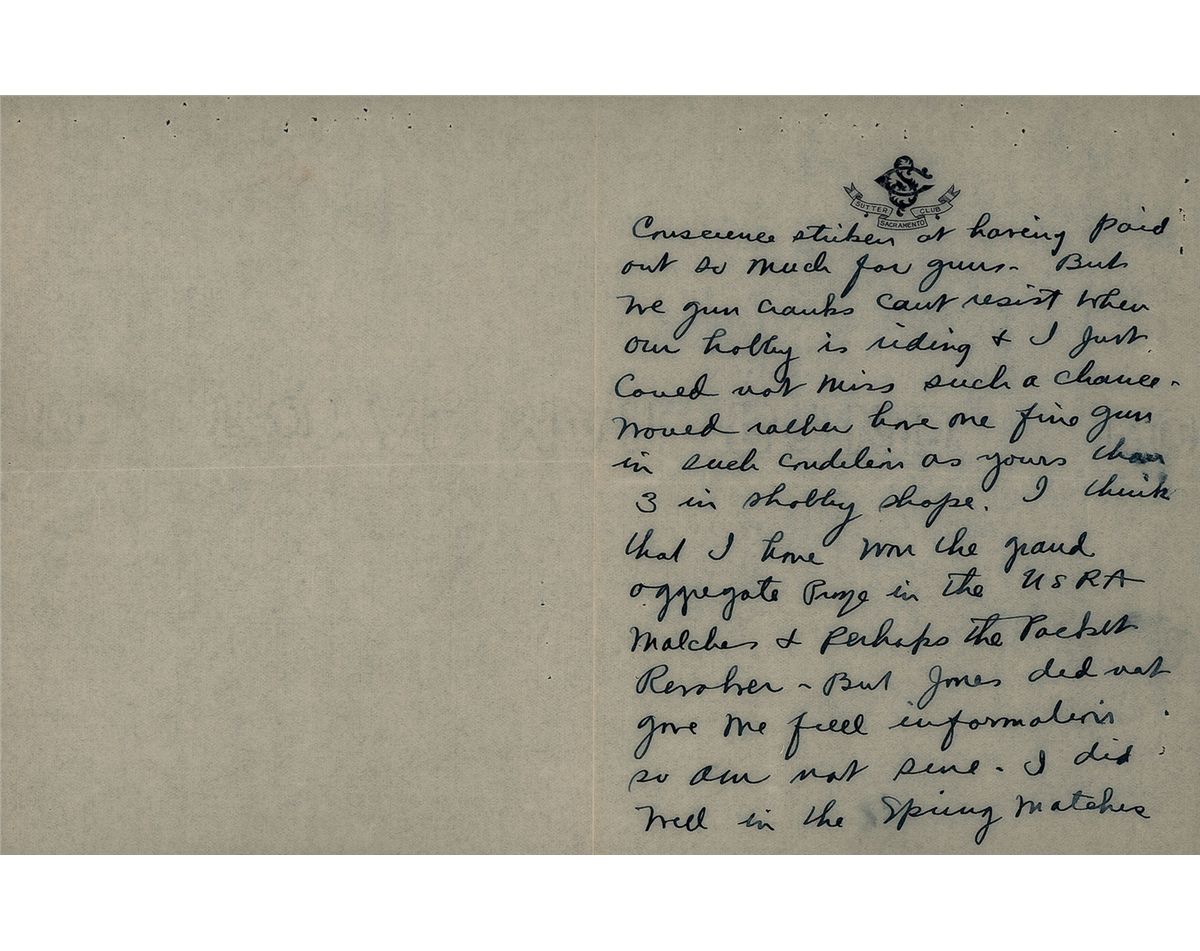 SUTTER CLUB
SACRAMENTO
Conscience striken at having paid
out so much for guns - But
we gun cranks cant resist when
our hobby is riding & I just
Could not miss such a chance -
Would rather have one fine gun
in such condition as yours than
3 in shabby shape. I think
that I have won the grand
aggregate Prize in the USRA
Matches & Perhaps the Pocket
Revolver - But Jones did not
give me full information
so am not sure - I did
well in the Spring Matches